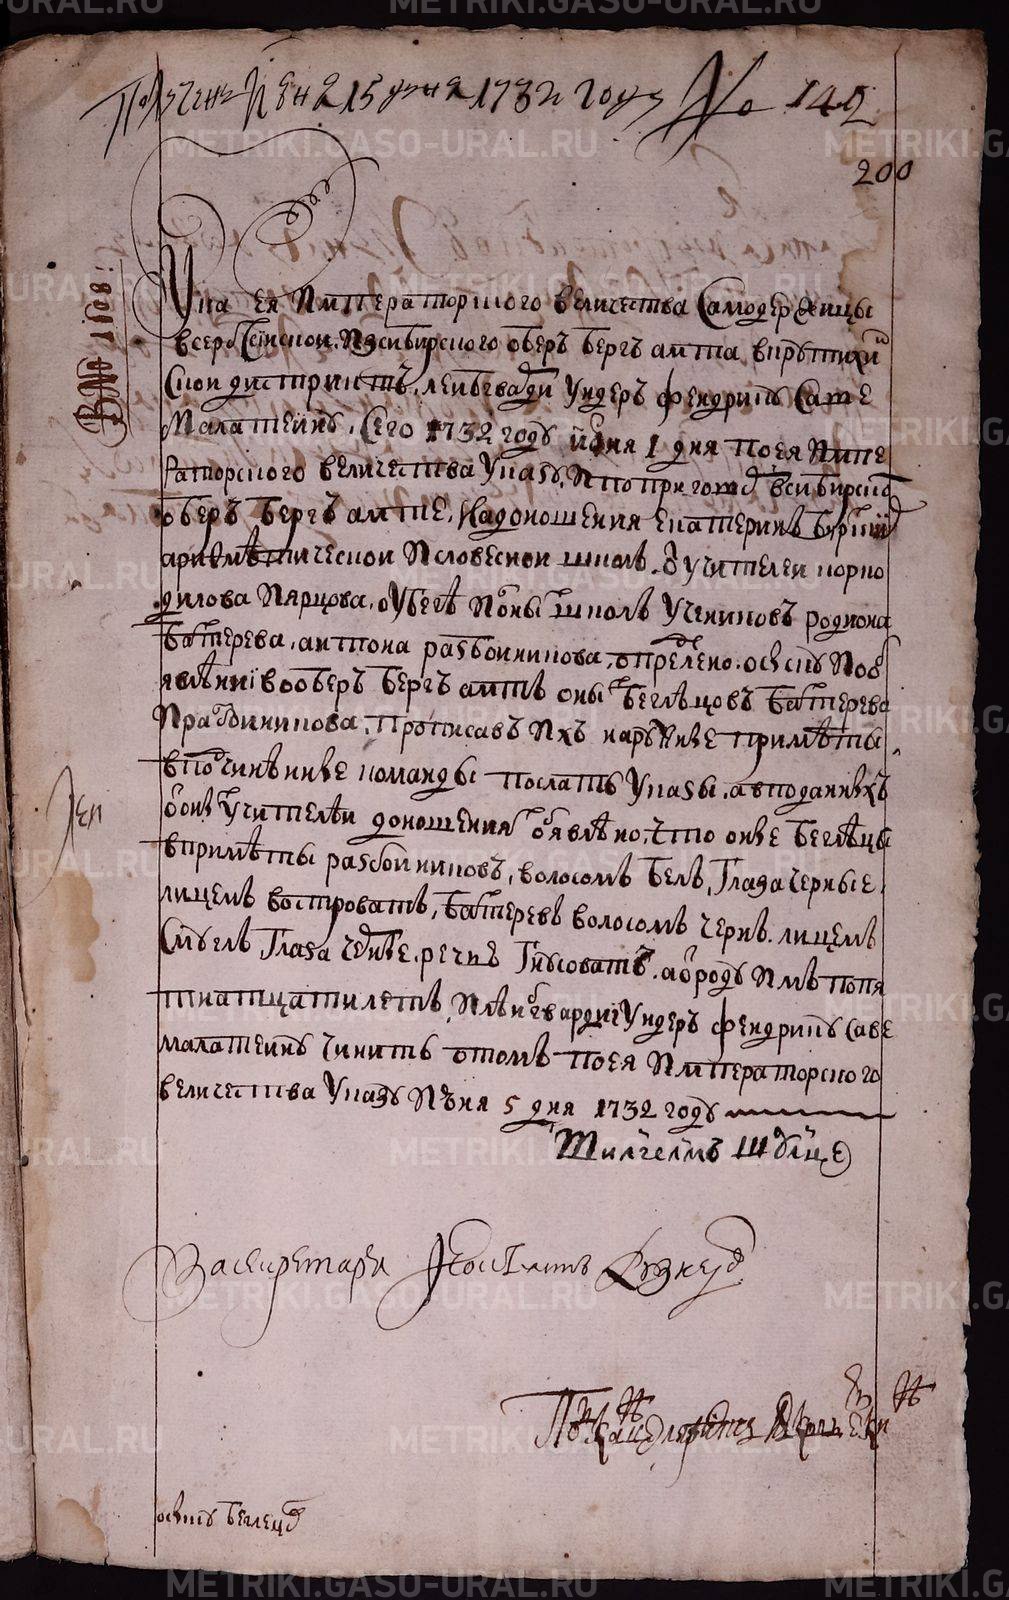 Полученъ июня 15 дня 1732 году № 142
200
№ 1808
Указ ея императорского величества самодержицы
всеросиской из сибирского оберъ бергъ амта в крутихин
ской дистриктъ леибгвардии ундеръ фендрику Саве
Малагеину. Сего 1732 году июня 1 дня по ея импе
раторского величества указу и по приговору в сибирском
оберъ бергъ амте на доношения екатеринъбургской
арифметической и словесной школъ от учителей корко
дилова и ярцова о убеге ис оных школъ учениковъ родиона
батерева антона разбойникова определено о сыску и об
явлении в оберъ бергъ амтъ оных беглецовъ батерева
и разбойникова прописавъ ихъ нарыже приметы
в подчиненные команды послать указы а в поданныхъ
от оных учителей доношениях объявлено что оные беглецы
в приметы разбойниковъ волосомъ белъ глаза черные
лицемъ востроватъ батеревъ волосомъ чернъ лицемъ
смуглъ глаза черные речью гнусоватъ а от роду имъ по пя
тнатцати летъ и леибгвардии ундеръ фендрику саве
малагеину чинить о томъ по ея императорского
величества указу июня 5 дня 1732 году
Вилгелмъ
За секретаря Констянтинъ Кузнецов
Подканцелярист
о сыску беглецов
METRIKI.GASO-URAL.RU